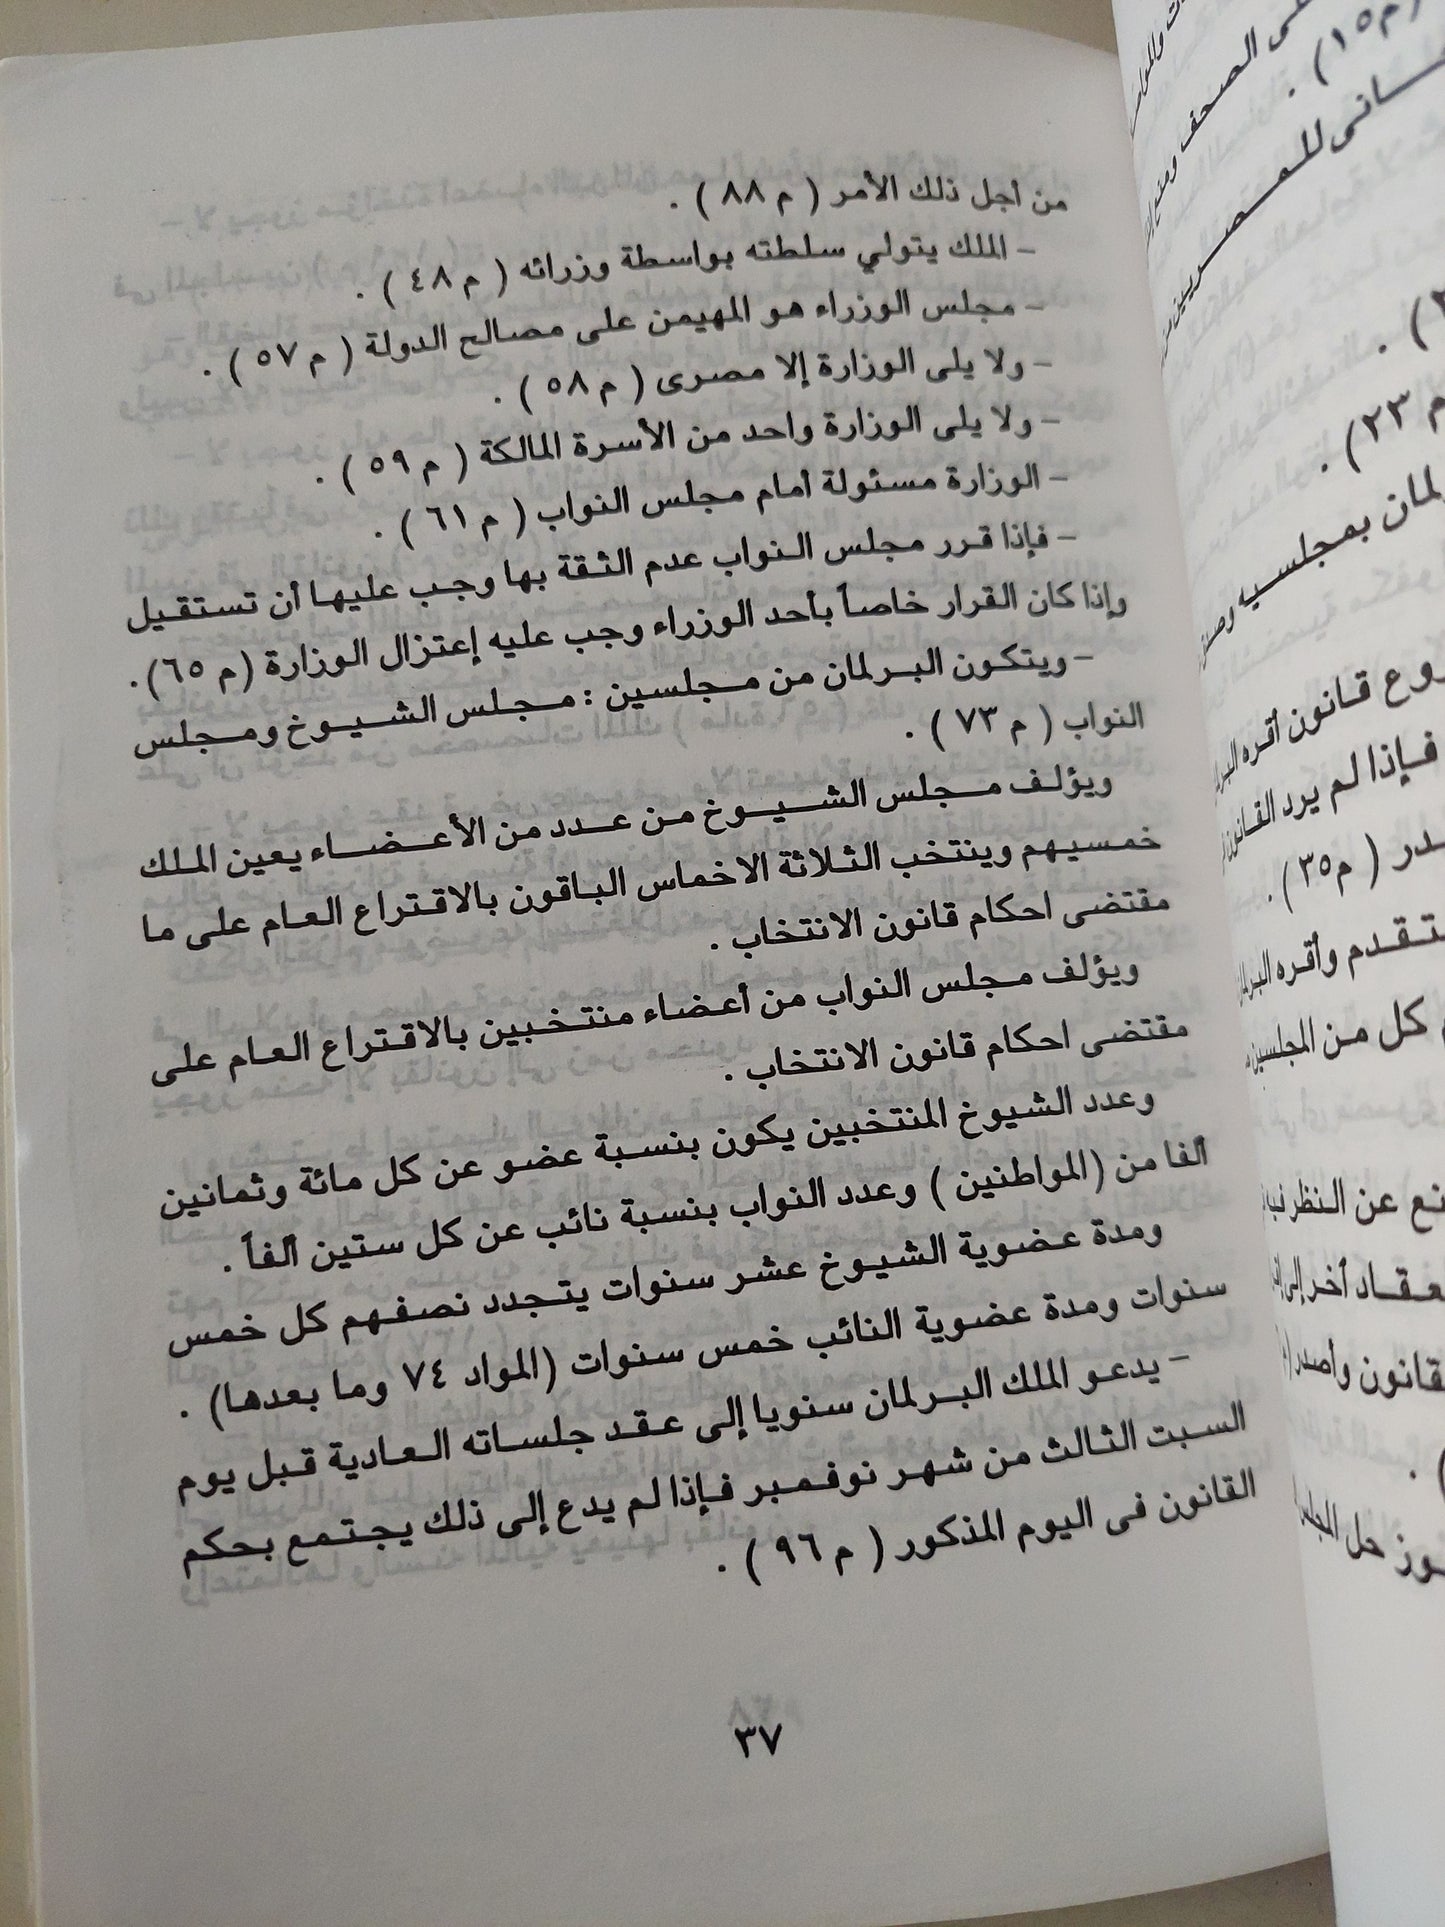 من أجل ذلك الأمر ( م ٨٨ ) .
– الملك يتولي سلطته بواسطة وزرائه ( م ٤٨ ) .
– مجلس الوزراء هو المهيمن على مصالح الدولة ( م ٥٧ ) .
– ولا يلى الوزارة إلا مصرى ( م ٥٨ ) .
– ولا يلى الوزارة واحد من الأسرة المالكة ( م ٥٩ ) .
– الوزارة مسئولة أمام مجلس النواب ( م ٦١ ) .
– فإذا قرر مجلس النواب عدم الثقة بها وجب عليها أن تستقيل
وإذا كان القرار خاصاً بأحد الوزراء وجب عليه إعتزال الوزارة (م ٦٥).
– ويتكون البرلمان من مجلسين : مجلس الشيوخ ومجلس
النواب ( م ٧٣ ) .
ويؤلف مجلس الشيوخ من عدد من الأعضاء يعين الملك
خمسيهم وينتخب الثلاثة الاخماس الباقون بالاقتراع العام على ما
مقتضى احكام قانون الانتخاب .
ويؤلف مجلس النواب من أعضاء منتخبين بالاقتراع العام على
مقتضى احكام قانون الانتخاب .
وعدد الشيوخ المنتخبين يكون بنسبة عضو عن كل مائة وثمانين
ألفا من (المواطنين ) وعدد النواب بنسبة نائب عن كل ستين ألفاً .
ومدة عضوية الشيوخ عشر سنوات يتجدد نصفهم كل خمس
سنوات ومدة عضوية النائب خمس سنوات (المواد ٧٤ وما بعدها) .
– يدعو الملك البرلمان سنويا إلى عقد جلساته العادية قبل يوم
السبت الثالث من شهر نوفمبر فإذا لم يدع إلى ذلك يجتمع بحكم
القانون فى اليوم المذكور ( م ٩٦ ) .
٣٧
(م١٥) .
على الصحف ومنع
للمصريين
م ٢٣) .
بمجلسيه
قانون أقره
فإذا لم يرد القانون
( م٣٥ ) .
وأقره
كل من المجلسين
عن النظر
أخر إلى
وأصدر
حل